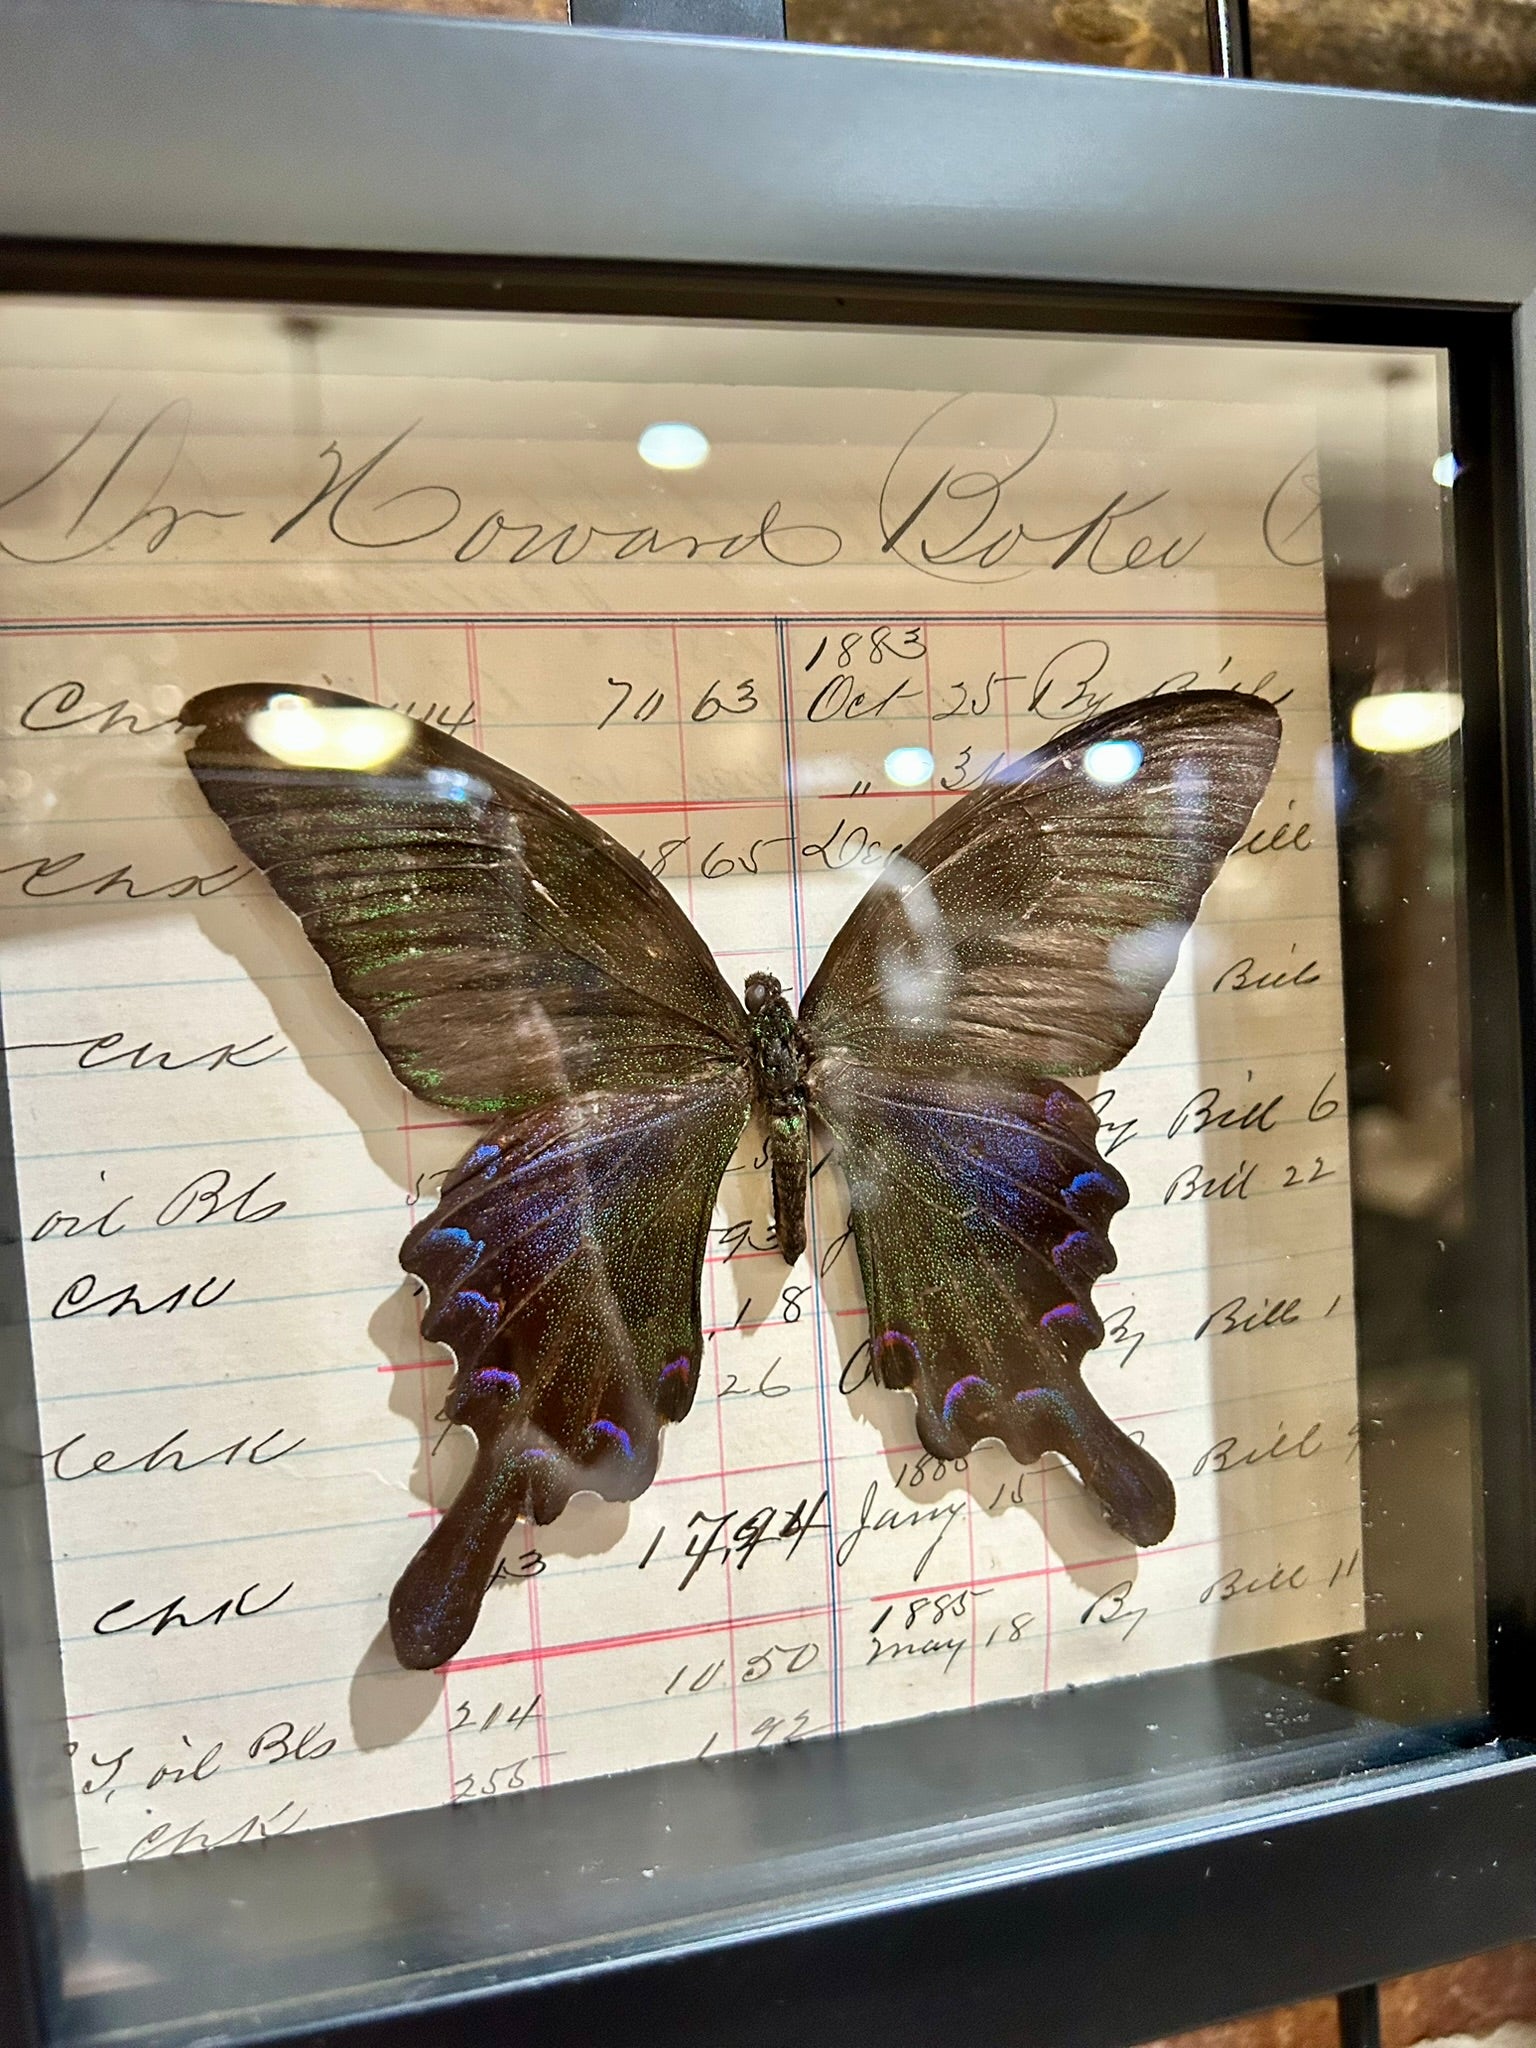 Dr Howard Boker
1883
Chk 44 70 63 Oct 25 By Bill
" 31
Chk 18 65 Dec Bill
Bill
Chk
By Bill 6
oil Bls 5 Bill 22
93
Chk 18 By Bill 1
26
Chk 1885 Bill 9
17,94 Jany 15
Chk 13 1885 By Bill 11
10 50 May 18
oil Bls 214 1 92
Chk 255